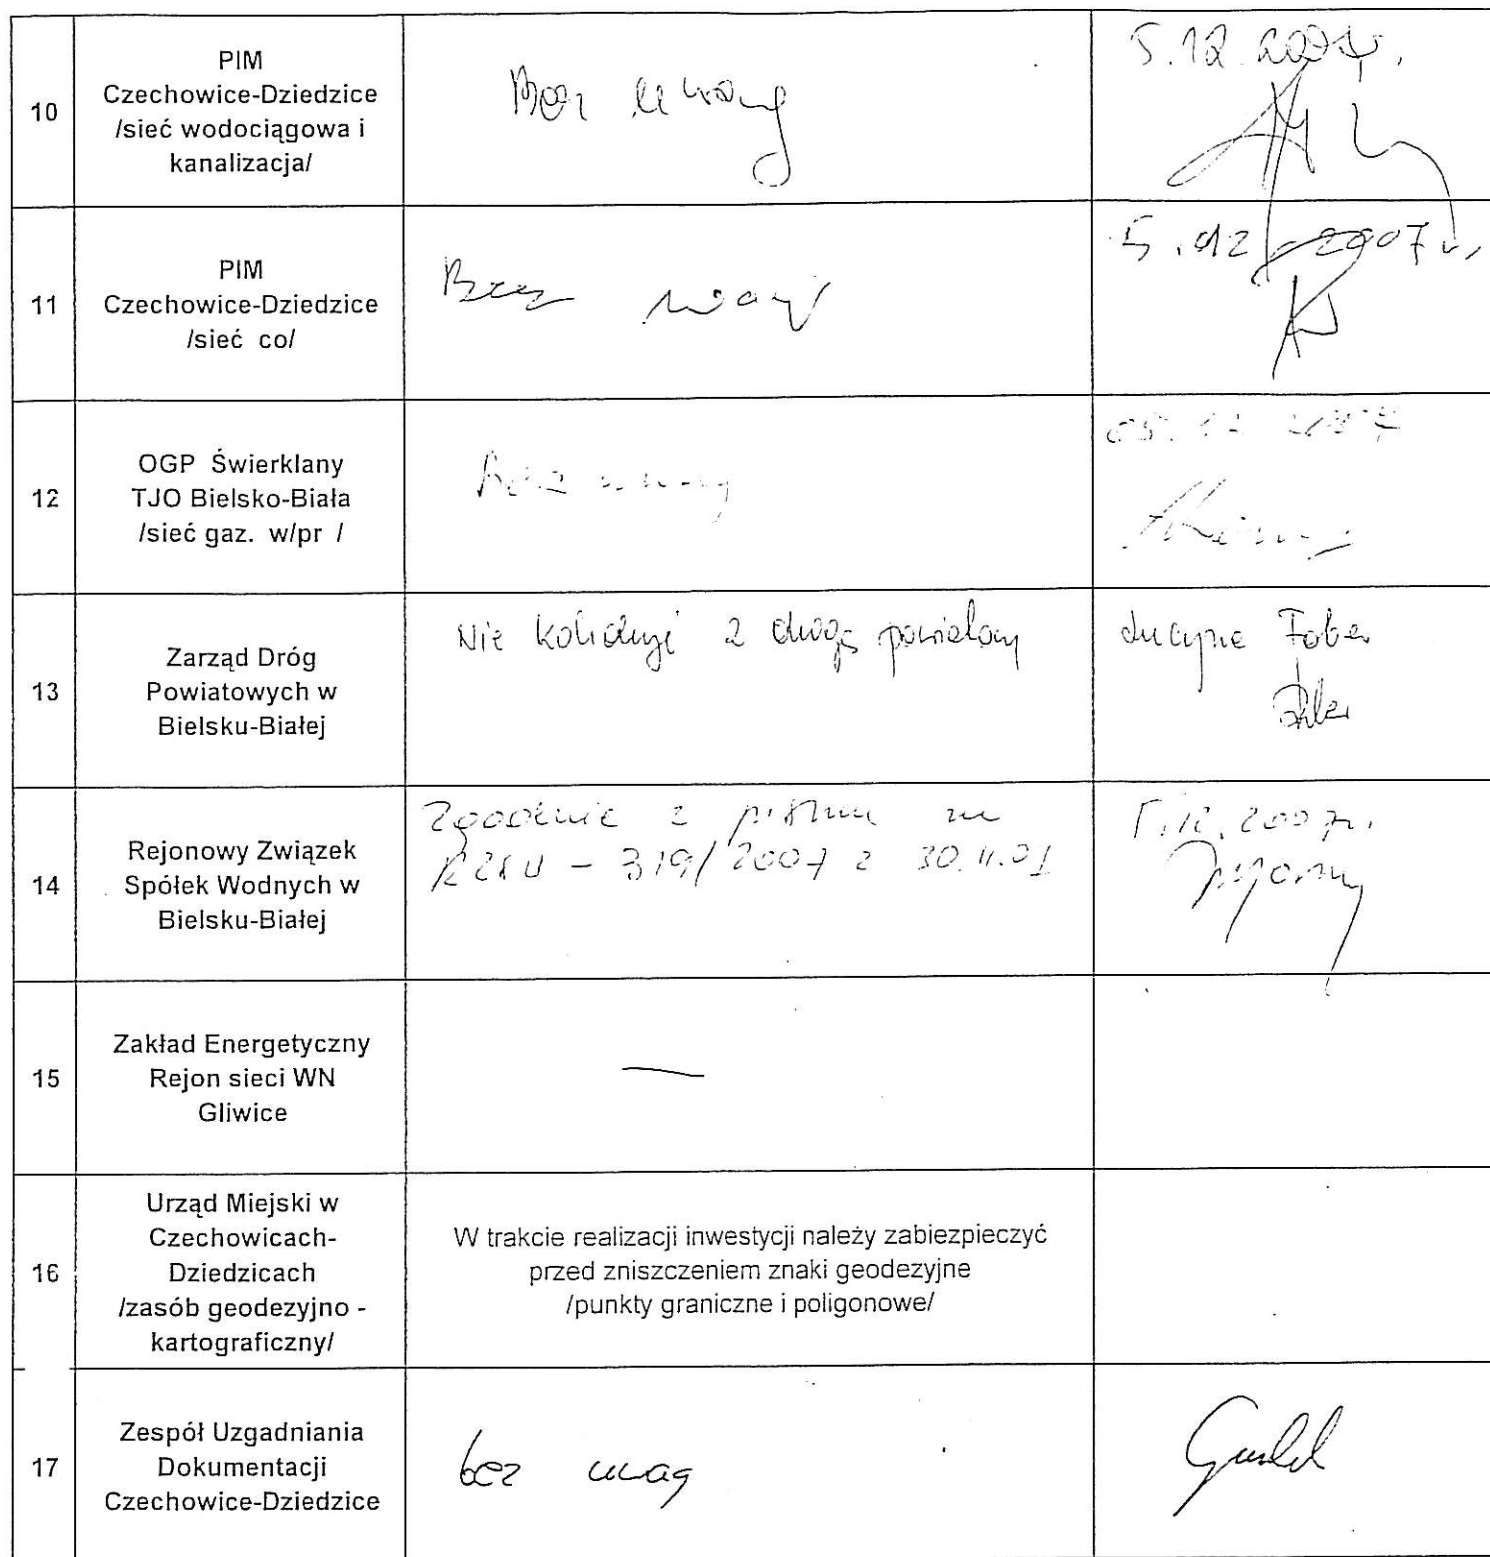 10
PIM
Czechowice-Dziedzice
/sieć wodociągowa i
kanalizacja/
Bez uwag
5.12.2007r.
11
PIM
Czechowice-Dziedzice
/sieć co/
Bez uwag
5.12.2007r.
12
OGP Świerklany
TJO Bielsko-Biała
/sieć gaz. w/pr /
Bez uwag
05.12.2007
13
Zarząd Dróg
Powiatowych w
Bielsku-Białej
Nie koliduje z drogą powiatową
Lucyna Faber
Faber
14
Rejonowy Związek
Spółek Wodnych w
Bielsku-Białej
Zgodnie z pismem nr
319/2007 z 30.11.07
5.12.2007r.
15
Zakład Energetyczny
Rejon sieci WN
Gliwice
—
16
Urząd Miejski w
Czechowicach-
Dziedzicach
/zasób geodezyjno -
kartograficzny/
W trakcie realizacji inwestycji należy zabiezpieczyć
przed zniszczeniem znaki geodezyjne
/punkty graniczne i poligonowe/
17
Zespół Uzgadniania
Dokumentacji
Czechowice-Dziedzice
bez uwag